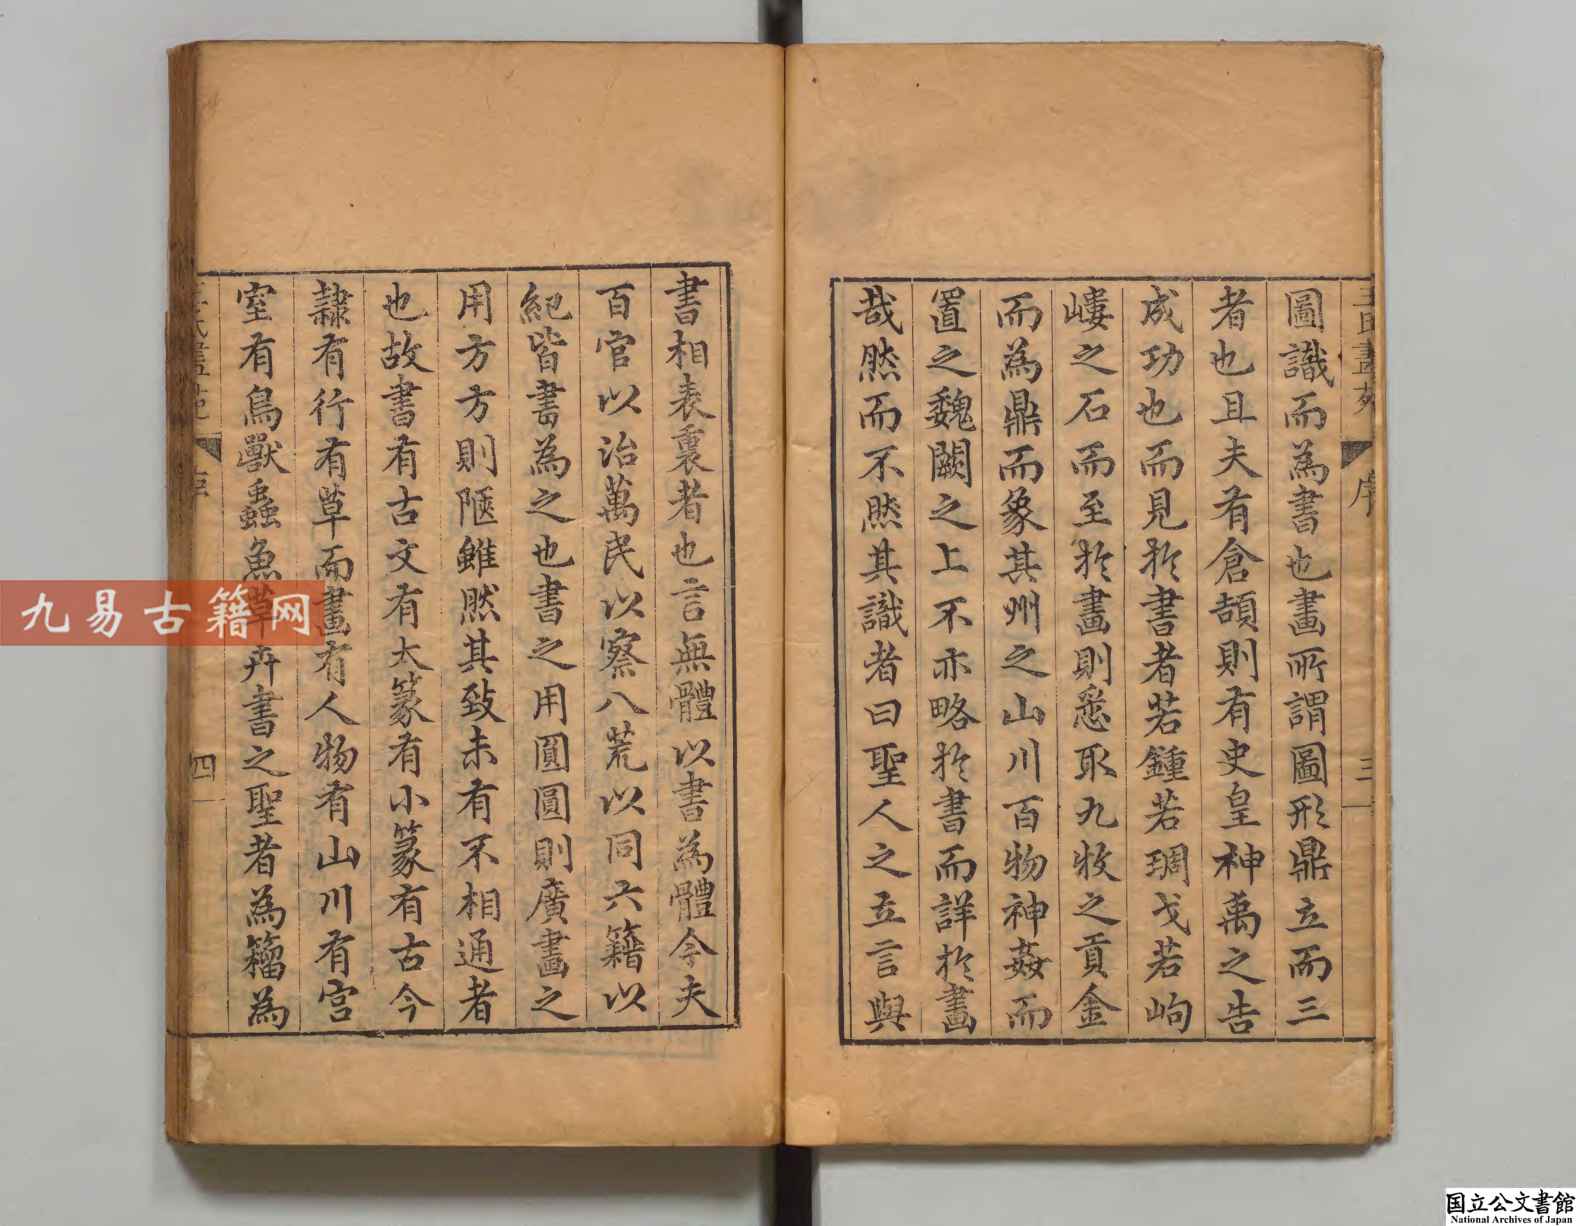 王氏畫苑 序 三
圖識而為書也畫所謂圖形鼎立而三
者也且夫有倉頡則有史皇神禹之告
成功也而見於書者若鍾若琱戈若岣
嶁之石而至於畫則悉取九牧之貢金
而為鼎而象其州之山川百物神姦而
置之魏闕之上不亦略於書而詳於畫
哉然而不然其識者曰聖人之立言與
書相表裏者也言無體以書為體今夫
百官以治萬民以察八荒以同六籍以
紀皆書為之也書之用圓圓則廣畫之
用方方則陿雖然其致未有不相通者
也故書有古文有大篆有小篆有古今
隷有行有草而畫有人物有山川有宮
室有鳥獸蟲魚草卉書之聖者為籀為
王氏畫苑 序 四
九易古籍网
国立公文書館
National Archives of Japan